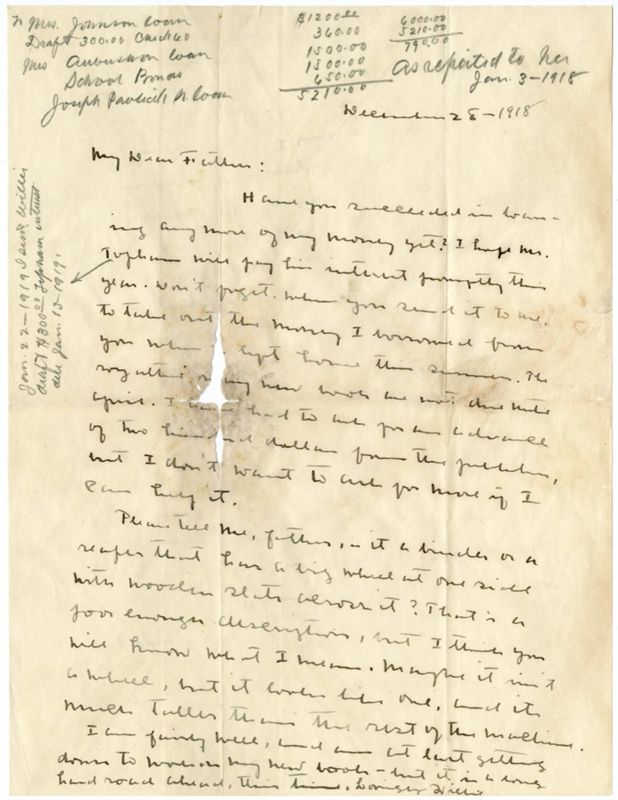 To Mrs. Johnson loan
Draft 300.00 Chicago
Mrs loan
School Bonds
Joseph Pavlicek Jr. loan
$1200.00
360.00
1500.00
1500.00
650.00
5210.00
6000.00
5210.00
790.00
As reported to her
Jan. 3 - 1918
December 28 - 1918
My Dear Father:
Have you succeeded in loan-
ing any more of my money yet? I hope Mr.
Topham will pay his interest promptly this
year. Don't forget, when you send it to me,
to take out the money I borrowed from
you when I left home this summer. The
royalties on my new book are not due until
April. I have had to ask for an advance
of two hundred dollars from the publisher,
but I don't want to ask for more if I
can help it.
Please tell me, father, is it a binder or a
reaper that has a big wheel at one side
with wooden slats across it? That's a
poor enough description, but I think you
will know what I mean. Maybe it isn't
a wheel, but it looks like one, and it's
much taller than the rest of the machine.
I am fairly well, and am at last getting
down to work on my new book - but it is a long
hard road ahead, this time, Lovingly Willie
Jan. 22 - 1919 I sent Willie
draft $800.00 Topham interest
due Jan. 15 - 1919.